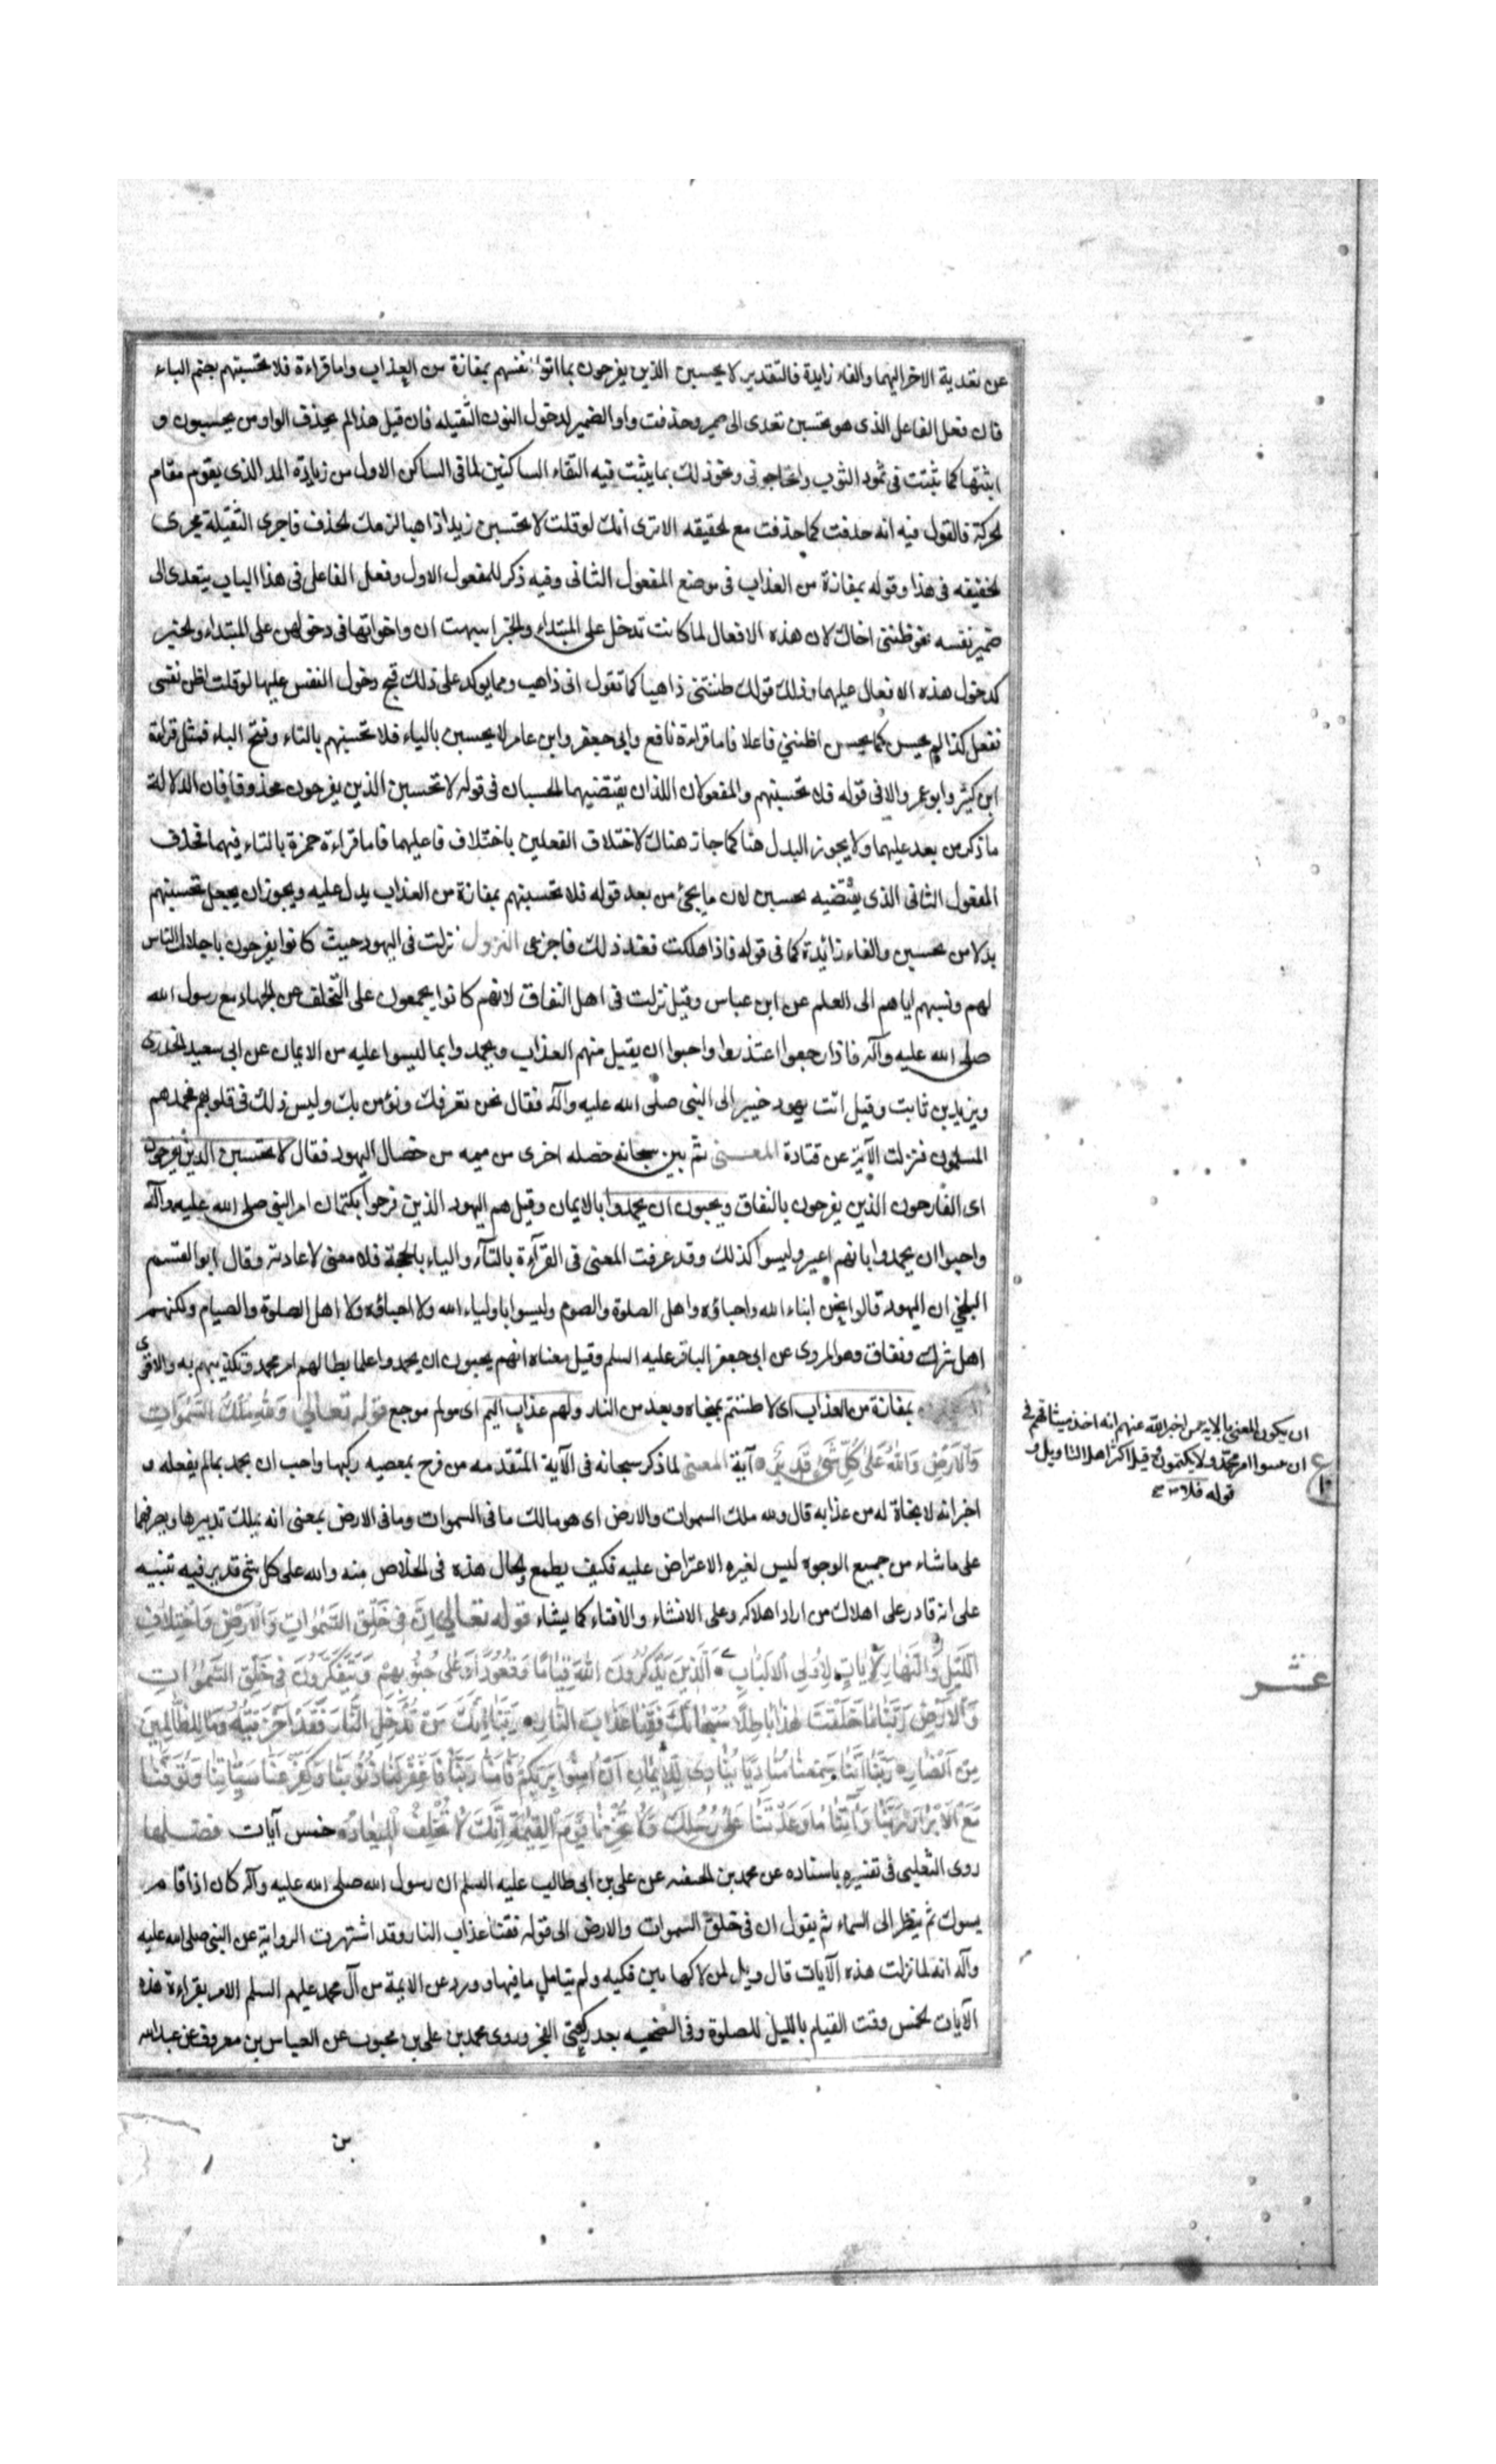 عن تعدية الاخر اليهما والفاء زايدة فالتقدير لا يحسبن الذين يفرحون بما اتوا انفسهم بمفازة من العذاب واما قراءة فلا تحسبنهم بضم الباء
فان فعل الفاعل الذى هو يحسبن تعدى الى ضمير وحذفت واو الضمير لدخول النون الثقيله فان قيل هذا لم يحذف الواو من يحسبون و
اثبتها كما ثبتت فى تمود الثوب واتحاجونى ونحو ذلك بما يثبت فيه التقاء الساكنين لما فى الساكن الاول من زيادة المد الذى يقوم مقام
لحركة فالقول فيه انه حذفت كما حذفت مع لخفيفه الا ترى انك لو قلت لا تحسبن زيدا ذاهبا لزمك لحذف فاجرى الثقيلة مجرى
لخفيفه فى هذا وقوله بمفازة من العذاب فى موضع المفعول الثانى وفيه ذكر للمفعول الاول وفعل الفاعل فى هذا الباب يتعدى الى
ضمير نفسه نحو ظننتى اخاك لان هذه الافعال لما كانت تدخل على المبتداء والخبر اشبهت ان واخواتها فى دخولهن على المبتداء ولخبر
كدخول هذه الافعال عليهما وذلك قولك ظننتنى ذاهبا كما تقول انى ذاهب ومما يوكد على ذلك قبح دخول النفس عليها لو قلت اظن نفسى
تفعل كذا لم يحسن كما يحسن اظننى فاعلا فاما قراءة نافع وابى جعفر وابن عامر لا يحسبن بالياء فلا تحسبنهم بالتاء وفتح الباء فمثل قراءة
ابن كثير وابو عمرو الا فى قوله فلا تحسبنهم والمفعولان اللذان يقتضيهما الحسبان فى قوله لا تحسبن الذين يفرحون محذوفا فان الدلالة
ما ذكر من بعد عليهما ولا يجوز البدل هنا كما جاز هناك لاختلاف الفعلين باختلاف فاعليهما فاما قراءة حمزة بالتاء فيهما فحذف
المفعول الثانى الذى يقتضيه تحسبن لان ما يجئ من بعد قوله فلا تحسبنهم بمفازة من العذاب يدل عليه ويجوز ان يجعل تحسبنهم
بدلا من تحسبن والفاء زائدة كما فى قوله فاذا هلكت فعند ذلك فاجزعى النزول نزلت فى اليهود حيث كانوا يفرحون باجلال الناس
لهم ونسبهم اياهم الى العلم عن ابن عباس وقيل نزلت فى اهل النفاق لانهم كانوا يجمعون على التخلف عن الجهاد مع رسول الله
صلى الله عليه وآله فاذا رجعوا اعتذروا واحبوا ان يقبل منهم العذاب ويحمدوا بما ليسوا عليه من الايمان عن ابى سعيد الخدرى
ويزيد بن ثابت وقيل اتت يهود خيبر الى النبى صلى الله عليه وآله فقال نحن نعرفك ونؤمن بك وليس ذلك فى قلوبهم فحمدهم
المسلمون فنزلت الآية عن قتادة المعنى ثم بين سبحانه خصله اخرى من ميمه من خصال اليهود فقال لا تحسبن الذين يفرحون
اى الفارحون الذين يفرحون بالنفاق ويحبون ان يحمدوا بالايمان وقيل هم اليهود الذين فرحوا بكتمان امر النبى صلى الله عليه وآله
واحبوا ان يحمدوا بانهم وليسوا كذلك وقد عرفت المعنى فى القرآءة بالتآء والياء فلا معنى لاعادته وقال ابو القسم
البلخى ان اليهود قالوا نحن ابناء الله واحباؤه واهل الصلوة والصوم وليسوا باولياء الله ولا احباؤه ولا اهل الصلوة والصيام ولكنهم
اهل شرك ونفاق وهو المروى عن ابى جعفر الباقر عليه السلم وقيل معناه انهم يحبون ان يحمدوا على ابطالهم امر محمد وتكذيبهم به والاقوى
بمفازة من العذاب اى لا ظننتم بمنجاه وبعد من النار ولهم عذاب اليم اى مولم موجع قوله تعالى وَلِلّٰهِ مُلْكُ السَّمٰوَاتِ
وَالْاَرْضِ وَاللهُ عَلٰى كُلِّ شَىْءٍ قَدِيْرٌ آية المعنى لما ذكر سبحانه فى الآية المتقدمه من فرح بمعصيه ركبها واحب ان يحمد بما لم يفعله و
اخبر انه لا نجاة له من عذابه قال ولله ملك السموات والارض اى هو مالك ما فى السموات وما فى الارض بمعنى انه يملك تدبيرها ويصرفهما
على ما شاء من جميع الوجوه ليس لغيره الاعتراض عليه فكيف يطمع ولحال هذه فى الخلاص منه والله على كل شئ قدير فيه تنبيه
على انه قادر على اهلاك من اراد اهلاكه وعلى الانشاء والافناء كما يشاء قوله تعالى اِنَّ فى خَلْقِ السَّمٰوَاتِ وَالْاَرْضِ وَاخْتِلَافِ
اللَّيْلِ وَالنَّهَارِ لَآيَاتٍ لِاُولِى الْاَلْبَابِ اَلَّذِينَ يَذْكُرُونَ اللهَ قِيَامًا وَقُعُودًا وَعَلٰى جُنُوبِهِمْ وَيَتَفَكَّرُونَ فى خَلْقِ السَّمٰوَاتِ
وَالْاَرْضِ رَبَّنَا مَا خَلَقْتَ هٰذَا بَاطِلًا سُبْحَانَكَ فَقِنَا عَذَابَ النَّارِ رَبَّنَا اِنَّكَ مَنْ تُدْخِلِ النَّارَ فَقَدْ اَخْزَيْتَهُ وَمَا لِلظَّالِمِينَ
مِنْ اَنْصَارٍ رَبَّنَا اِنَّنَا سَمِعْنَا مُنَادِيًا يُنَادِى لِلْاِيْمَانِ اَنْ آمِنُوا بِرَبِّكُمْ فَآمَنَّا رَبَّنَا فَاغْفِرْ لَنَا ذُنُوبَنَا وَكَفِّرْ عَنَّا سَيِّئَاتِنَا وَتَوَفَّنَا
مَعَ الْاَبْرَارِ رَبَّنَا وَآتِنَا مَا وَعَدْتَنَا عَلٰى رُسُلِكَ وَلَا تُخْزِنَا يَوْمَ الْقِيٰمَةِ اِنَّكَ لَا تُخْلِفُ الْمِيْعَادَ خمس آيات فضلها
روى الثعلبى فى تفسيره باسناده عن محمد بن الحنفيه عن على بن ابى طالب عليه السلم ان رسول الله صلى الله عليه وآله كان اذا قام
يسوك ثم ينظر الى السماء ثم يقول ان فى خلق السموات والارض الى قوله فقنا عذاب النار وقد اشتهرت الرواية عن النبى صلى الله عليه
وآله انه لما نزلت هذه الآيات قال ويل لمن لاكها بين فكيه ولم يتامل ما فيها وورد عن الايمة من آل محمد عليهم السلم الامر بقراءة هذه
الآيات لخمس وقت القيام بالليل للصلوة وفى الضجعه بعد ركعتى الفجر وروى محمد بن على بن محبوب عن العباس بن معروف عن عبدالله
بن
ان يكون المعنى بالايه من اخبر الله عنهم انه اخذ ميثاقهم فى
ان امر محمد ولا يكتمونه وقيل اكثر اهل التاويل و
قوله فلا
عشر